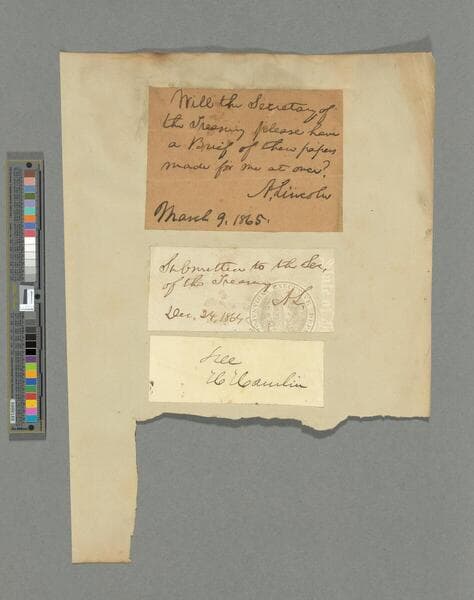 Will the Secretary of
the Treasury please have
a Brief of these papers
made for me at once?
A. Lincoln
March 9, 1865.
Submitted to the Sec.
of the Treasury
A. L.
Dec. 24, 1864
Free
H Hamlin